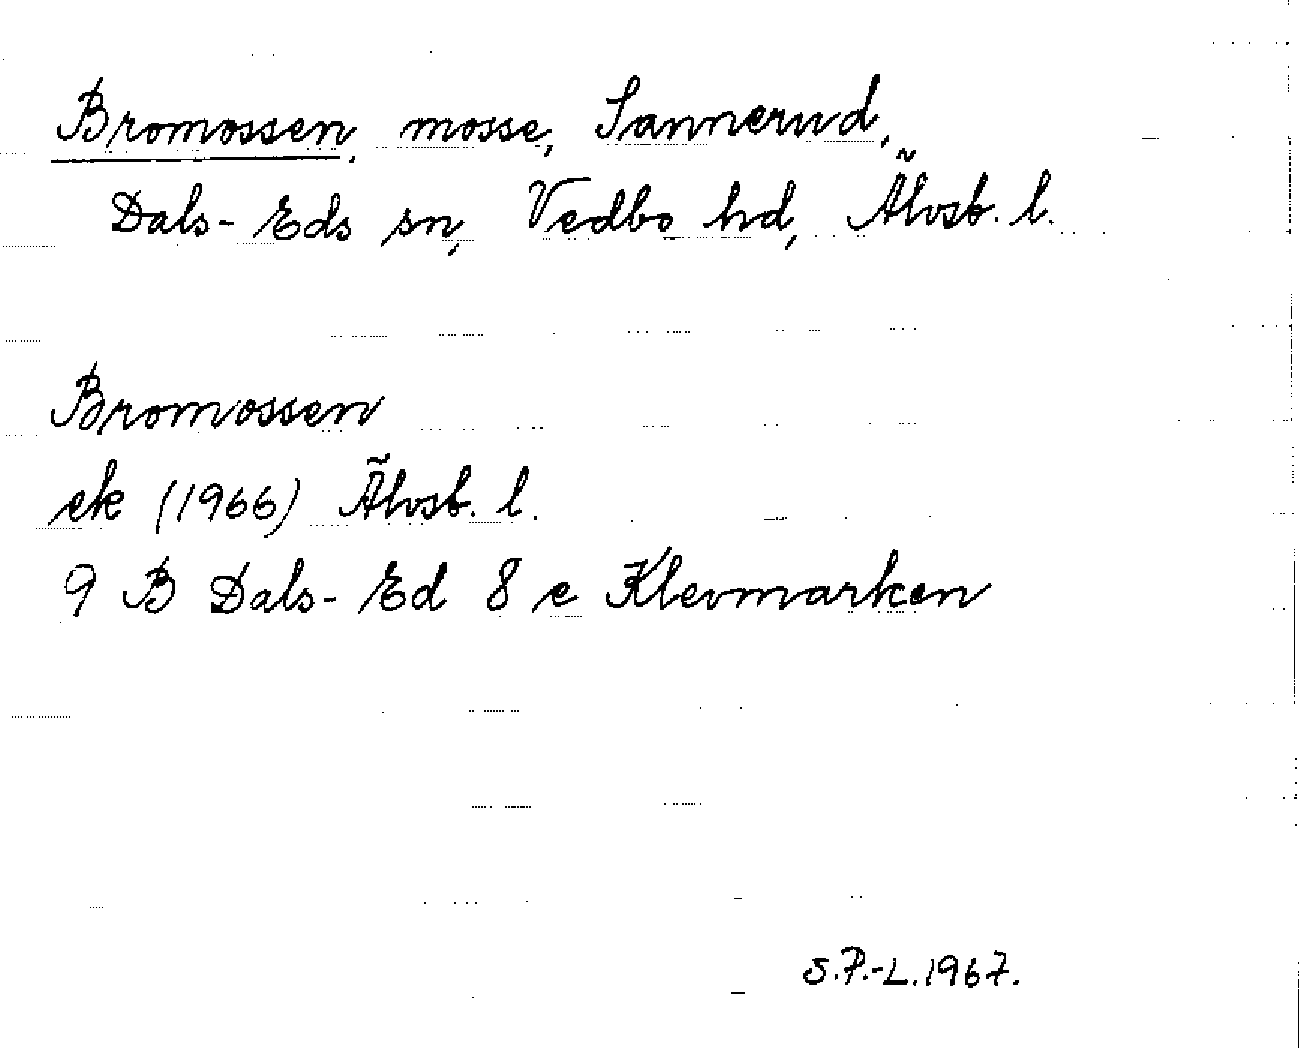 Bromossen, mosse, Sannerud,
Dals-Eds sn, Vedbo hd, Älvsb. l.
Bromossen
ek (1966) Älvsb. l.
9 B Dals-Ed 8 e Klevmarken
S.P.-L.1967.